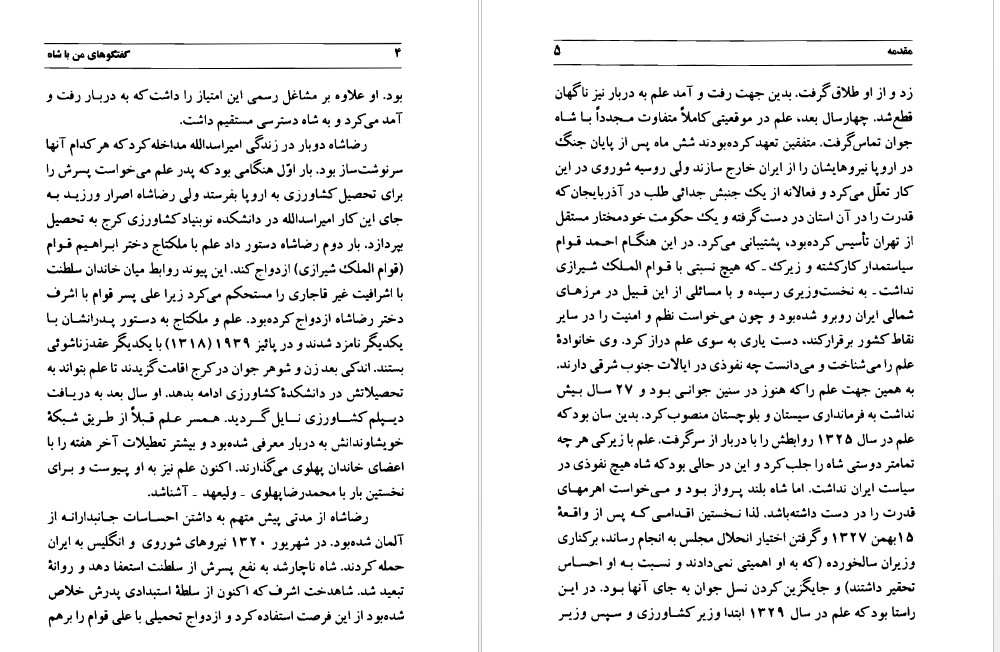 گفتگوهای من با شاه
۴
بود. او علاوه بر مشاغل رسمی این امتیاز را داشت که به دربار رفت و
آمد می‌کرد و به شاه دسترسی مستقیم داشت.
رضاشاه دوبار در زندگی امیراسدالله مداخله کرد که هر کدام آنها
سرنوشت‌ساز بود. بار اوّل هنگامی بود که پدر علم می‌خواست پسرش را
برای تحصیل کشاورزی به اروپا بفرستد ولی رضاشاه اصرار ورزید به
جای این کار امیراسدالله در دانشکده نوبنیاد کشاورزی کرج به تحصیل
بپردازد. بار دوم رضاشاه دستور داد علم با ملکتاج دختر ابراهیم قوام
(قوام الملک شیرازی) ازدواج کند. این پیوند روابط میان خاندان سلطنت
با اشرافیت غیر قاجاری را مستحکم می‌کرد زیرا علی پسر قوام با اشرف
دختر رضاشاه ازدواج کرده‌بود. علم و ملکتاج به دستور پدرانشان با
یکدیگر نامزد شدند و در پائیز ۱۹۳۹ (۱۳۱۸) با یکدیگر عقدزناشوئی
بستند. اندکی بعد زن و شوهر جوان در کرج اقامت گزیدند تا علم بتواند به
تحصیلاتش در دانشکدۀ کشاورزی ادامه بدهد. او سال بعد به دریافت
دیپلم کشاورزی نایل گردید. همسر علم قبلاً از طریق شبکۀ
خویشاوندانش به دربار معرفی شده‌بود و بیشتر تعطیلات آخر هفته را با
اعضای خاندان پهلوی می‌گذارند. اکنون علم نیز به او پیوست و برای
نخستین بار با محمدرضا پهلوی - ولیعهد - آشناشد.
رضاشاه از مدتی پیش متهم به داشتن احساسات جانبدارانه از
آلمان شده‌بود. در شهریور ۱۳۲۰ نیروهای شوروی و انگلیس به ایران
حمله کردند. شاه ناچارشد به نفع پسرش از سلطنت استعفا دهد و روانۀ
تبعید شد. شاهدخت اشرف که اکنون از سلطۀ استبدادی پدرش خلاص
شده‌بود از این فرصت استفاده کرد و ازدواج تحمیلی با علی قوام را برهم
مقدمه
۵
زد و از او طلاق گرفت. بدین جهت رفت و آمد علم به دربار نیز ناگهان
قطع شد. چهارسال بعد، علم در موقعیتی کاملاً متفاوت مجدداً با شاه
جوان تماس گرفت. متفقین تعهد کرده‌بودند شش ماه پس از پایان جنگ
در اروپا نیروهایشان را از ایران خارج سازند ولی روسیه شوروی در این
کار تعلّل می‌کرد و فعالانه از یک جنبش جدائی طلب در آذربایجان که
قدرت را در آن استان در دست گرفته و یک حکومت خودمختار مستقل
از تهران تأسیس کرده‌بود، پشتیبانی می‌کرد. در این هنگام احمد قوام
سیاستمدار کارکشته و زیرک - که هیچ نسبتی با قوام الملک شیرازی
نداشت - به نخست‌وزیری رسیده و با مسائلی از این قبیل در مرزهای
شمالی ایران روبرو شده‌بود و چون می‌خواست نظم و امنیت را در سایر
نقاط کشور برقرارکند، دست یاری به سوی علم دراز کرد. وی خانوادۀ
علم را می‌شناخت و می‌دانست چه نفوذی در ایالات جنوب شرقی دارند.
به همین جهت علم را که هنوز در سنین جوانی بود و ۲۷ سال بیش
نداشت به فرمانداری سیستان و بلوچستان منصوب کرد. بدین سان بود که
علم در سال ۱۳۲۵ روابطش را با دربار از سرگرفت. علم با زیرکی هر چه
تمامتر دوستی شاه را جلب کرد و این در حالی بود که شاه هیچ نفوذی در
سیاست ایران نداشت. اما شاه بلند پرواز بود و می‌خواست اهرمهای
قدرت را در دست داشته‌باشد. لذا نخستین اقدامی که پس از واقعۀ
۱۵بهمن ۱۳۲۷ و گرفتن اختیار انحلال مجلس به انجام رساند، برکناری
وزیران سالخورده (که به او اهمیتی نمی‌دادند و نسبت به او احساس
تحقیر داشتند) و جایگزین کردن نسل جوان به جای آنها بود. در این
راستا بود که علم در سال ۱۳۲۹ ابتدا وزیر کشاورزی و سپس وزیر